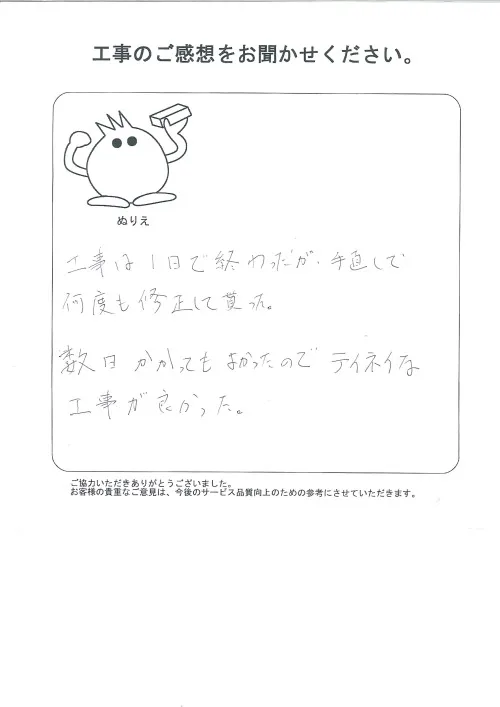 工事のご感想をお聞かせください。
ぬりえ
工事は1日で終わったが、手直しで
何度も修正して貰った。
数日かかってもよかったのでテイネイな
工事が良かった。
ご協力いただきありがとうございました。
お客様の貴重なご意見は、今後のサービス品質向上のための参考にさせていただきます。